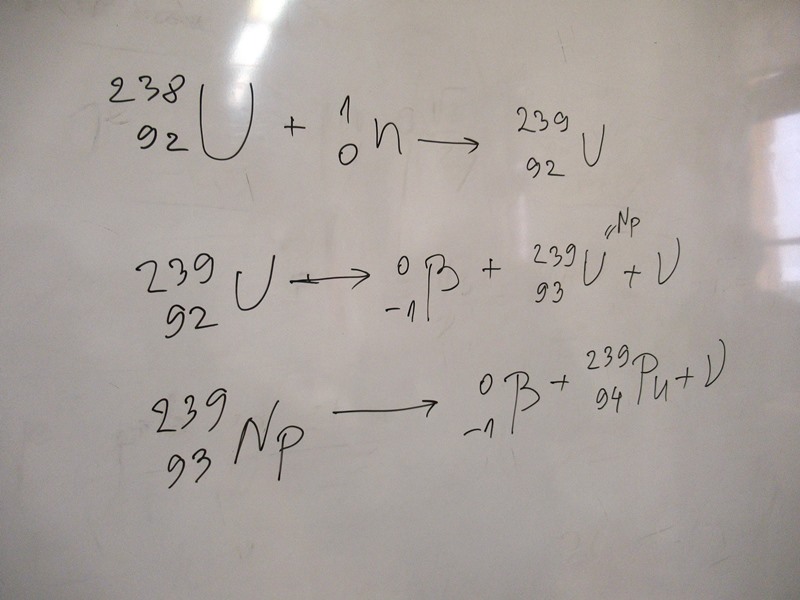 ²³⁸₉₂U + ¹₀n → ²³⁹₉₂U
²³⁹₉₂U → ⁰₋₁β + ²³⁹₉₃U "Np + ν
²³⁹₉₃Np → ⁰₋₁β + ²³⁹₉₄Pu + ν